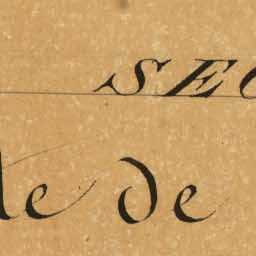 SEC
te de